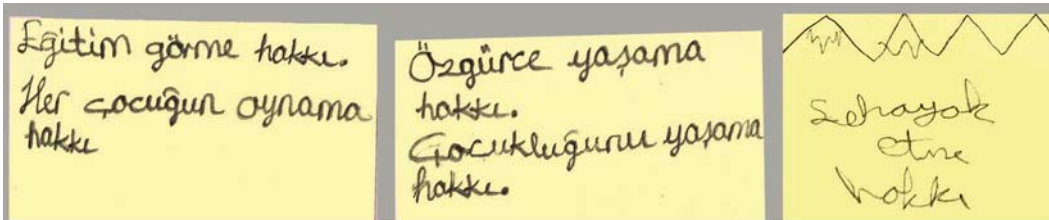 Eğitim görme hakkı.
Her çocuğun oynama
hakkı
Özgürce yaşama
hakkı.
Çocukluğunu yaşama
hakkı.
Sehayak
etme
hakkı